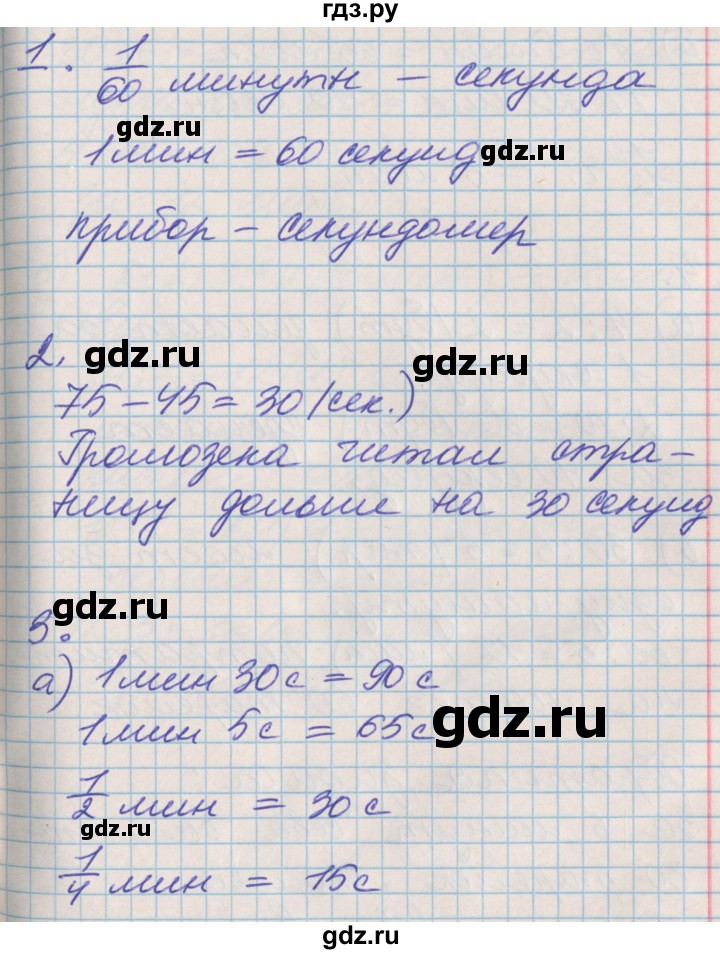 гдз.ру
1. 1/60 минуты – секунда
gdz.ru
1 мин = 60 секунд
gdz.ru
прибор – секундомер
2. gdz.ru
gdz.ru
75 – 45 = 30 (сек.)
Громозека читал стра-
ницу дольше на 30 секунд
gdz.ru
3.
а) 1 мин 30 с = 90 с
1 мин 5 с = 65 с
gdz.ru
1/2 мин = 30 с
gdz.ru
1/4 мин = 15 с
gdz.ru